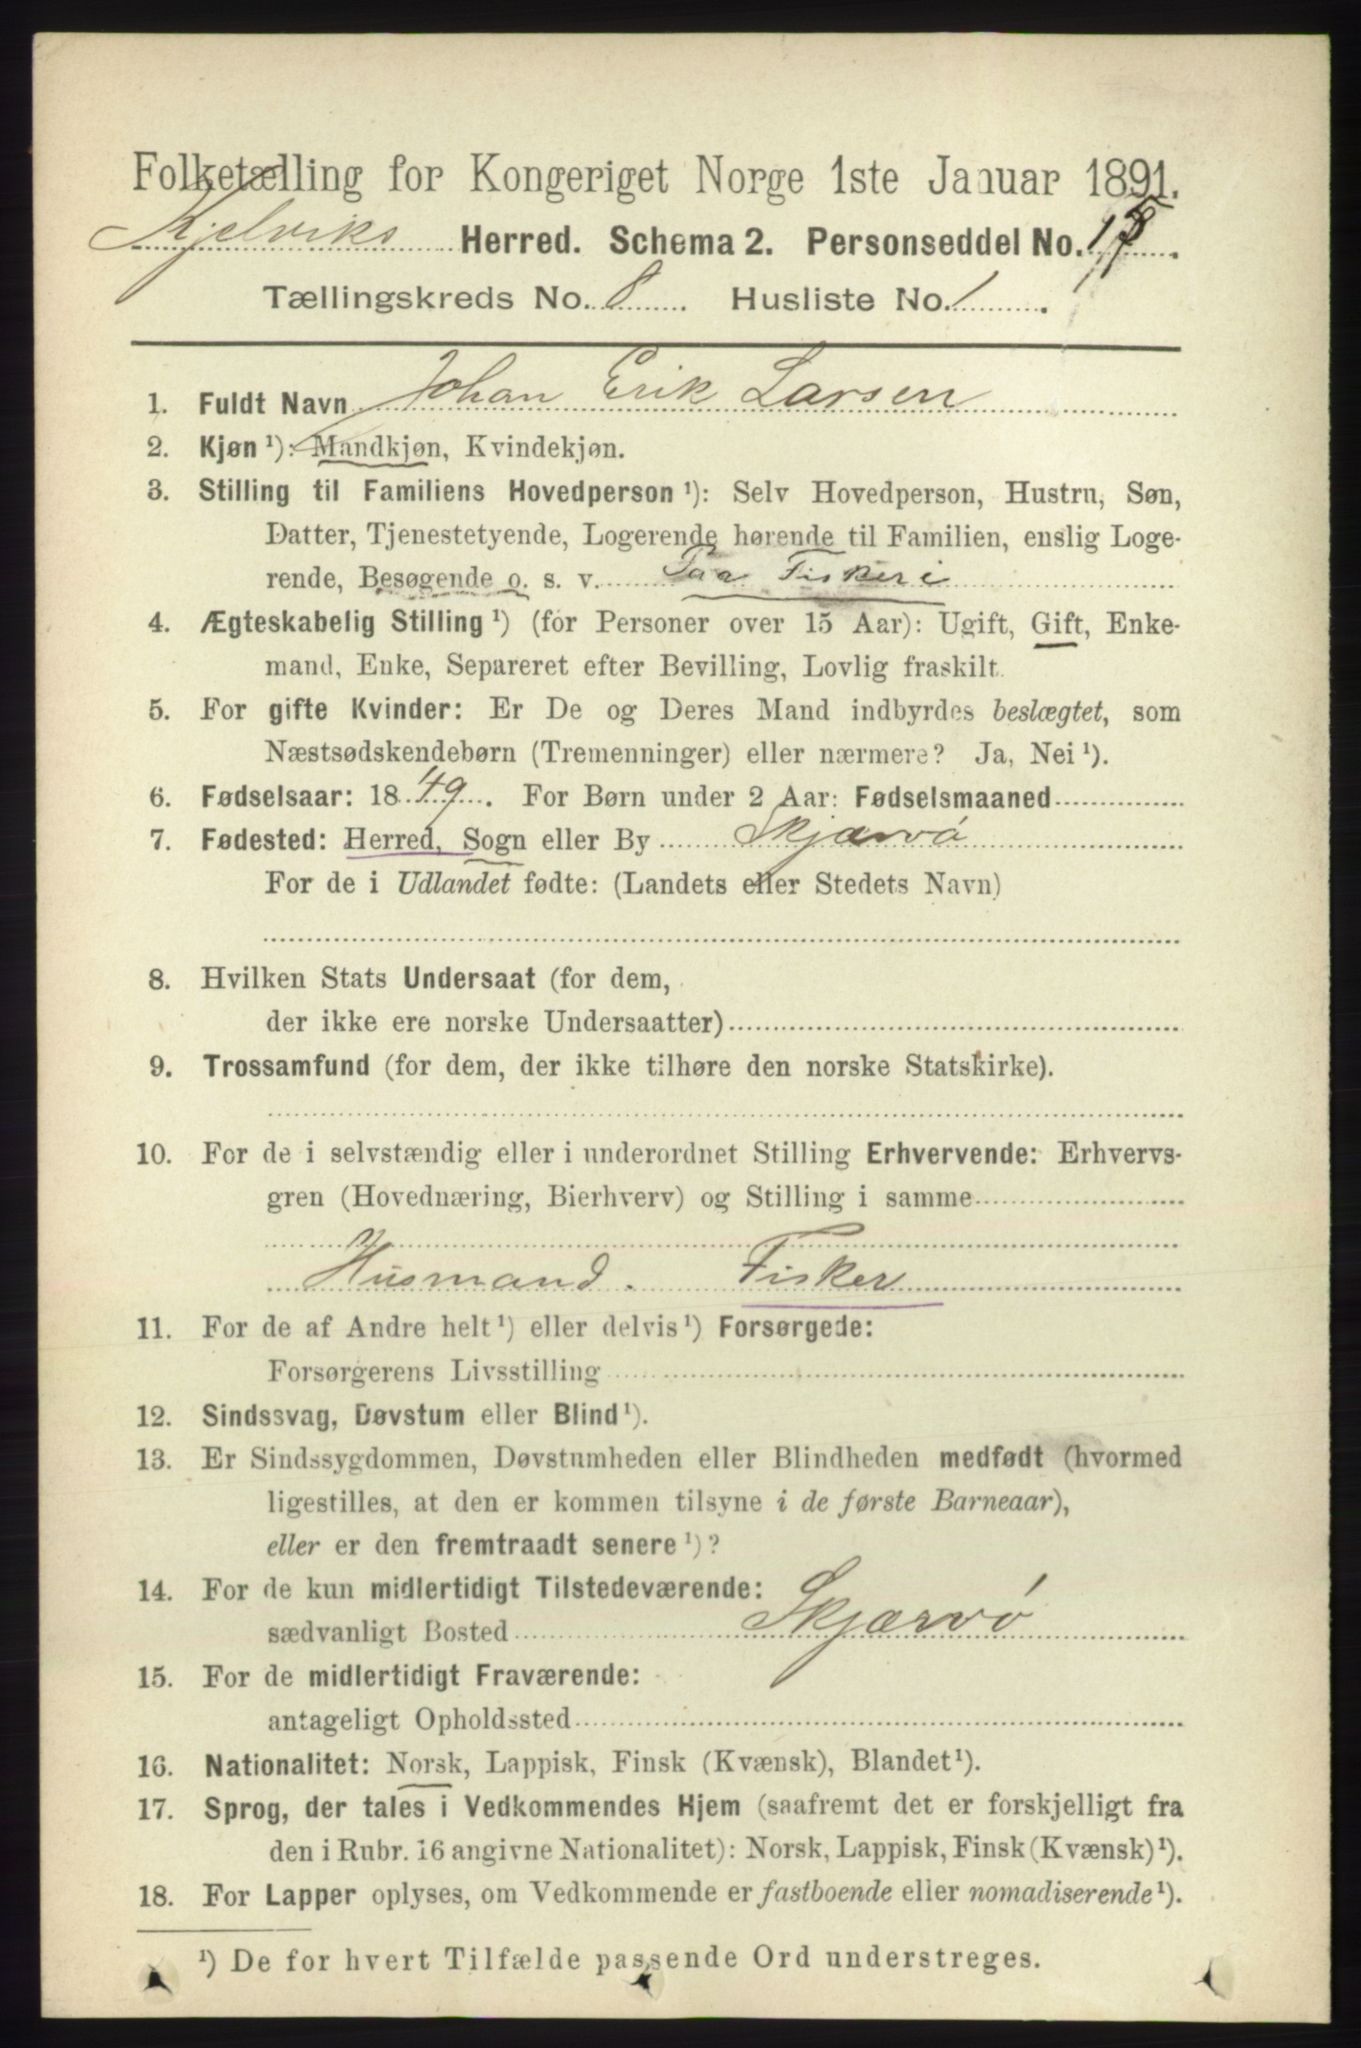 Folketælling for Kongeriget Norge 1ste Januar 1891.
Kjelviks Herred. Schema 2. Personseddel No. 15.
Tællingskreds No. 8. Husliste No. 1.
1. Fuldt Navn Johan Erik Larsen
2. Kjøn ¹): Mandkjøn, Kvindekjøn.
3. Stilling til Familiens Hovedperson ¹): Selv Hovedperson, Hustru, Søn,
Datter, Tjenestetyende, Logerende hørende til Familien, enslig Loge-
rende, Besøgende o. s. v. Paa Fiskeri
4. Ægteskabelig Stilling ¹) (for Personer over 15 Aar): Ugift, Gift, Enke-
mand, Enke, Separeret efter Bevilling, Lovlig fraskilt.
5. For gifte Kvinder: Er De og Deres Mand indbyrdes beslægtet, som
Næstsødskendebørn (Tremenninger) eller nærmere? Ja, Nei ¹).
6. Fødselsaar: 1849. For Børn under 2 Aar: Fødselsmaaned
7. Fødested: Herred, Sogn eller By Skjærvö
For de i Udlandet fødte: (Landets eller Stedets Navn)
8. Hvilken Stats Undersaat (for dem,
der ikke ere norske Undersaatter)
9. Trossamfund (for dem, der ikke tilhøre den norske Statskirke).
10. For de i selvstændig eller i underordnet Stilling Erhvervende: Erhvervs-
gren (Hovednæring, Bierhverv) og Stilling i samme
Husmand. Fisker
11. For de af Andre helt ¹) eller delvis ¹) Forsørgede:
Forsørgerens Livsstilling
12. Sindssvag, Døvstum eller Blind ¹).
13. Er Sindssygdommen, Døvstumheden eller Blindheden medfødt (hvormed
ligestilles, at den er kommen tilsyne i de første Barneaar),
eller er den fremtraadt senere ¹)?
14. For de kun midlertidigt Tilstedeværende:
sædvanligt Bosted Skjærvö
15. For de midlertidigt Fraværende:
antageligt Opholdssted
16. Nationalitet: Norsk, Lappisk, Finsk (Kvænsk), Blandet ¹).
17. Sprog, der tales i Vedkommendes Hjem (saafremt det er forskjelligt fra
den i Rubr. 16 angivne Nationalitet): Norsk, Lappisk, Finsk (Kvænsk) ¹).
18. For Lapper oplyses, om Vedkommende er fastboende eller nomadiserende ¹).
¹) De for hvert Tilfælde passende Ord understreges.